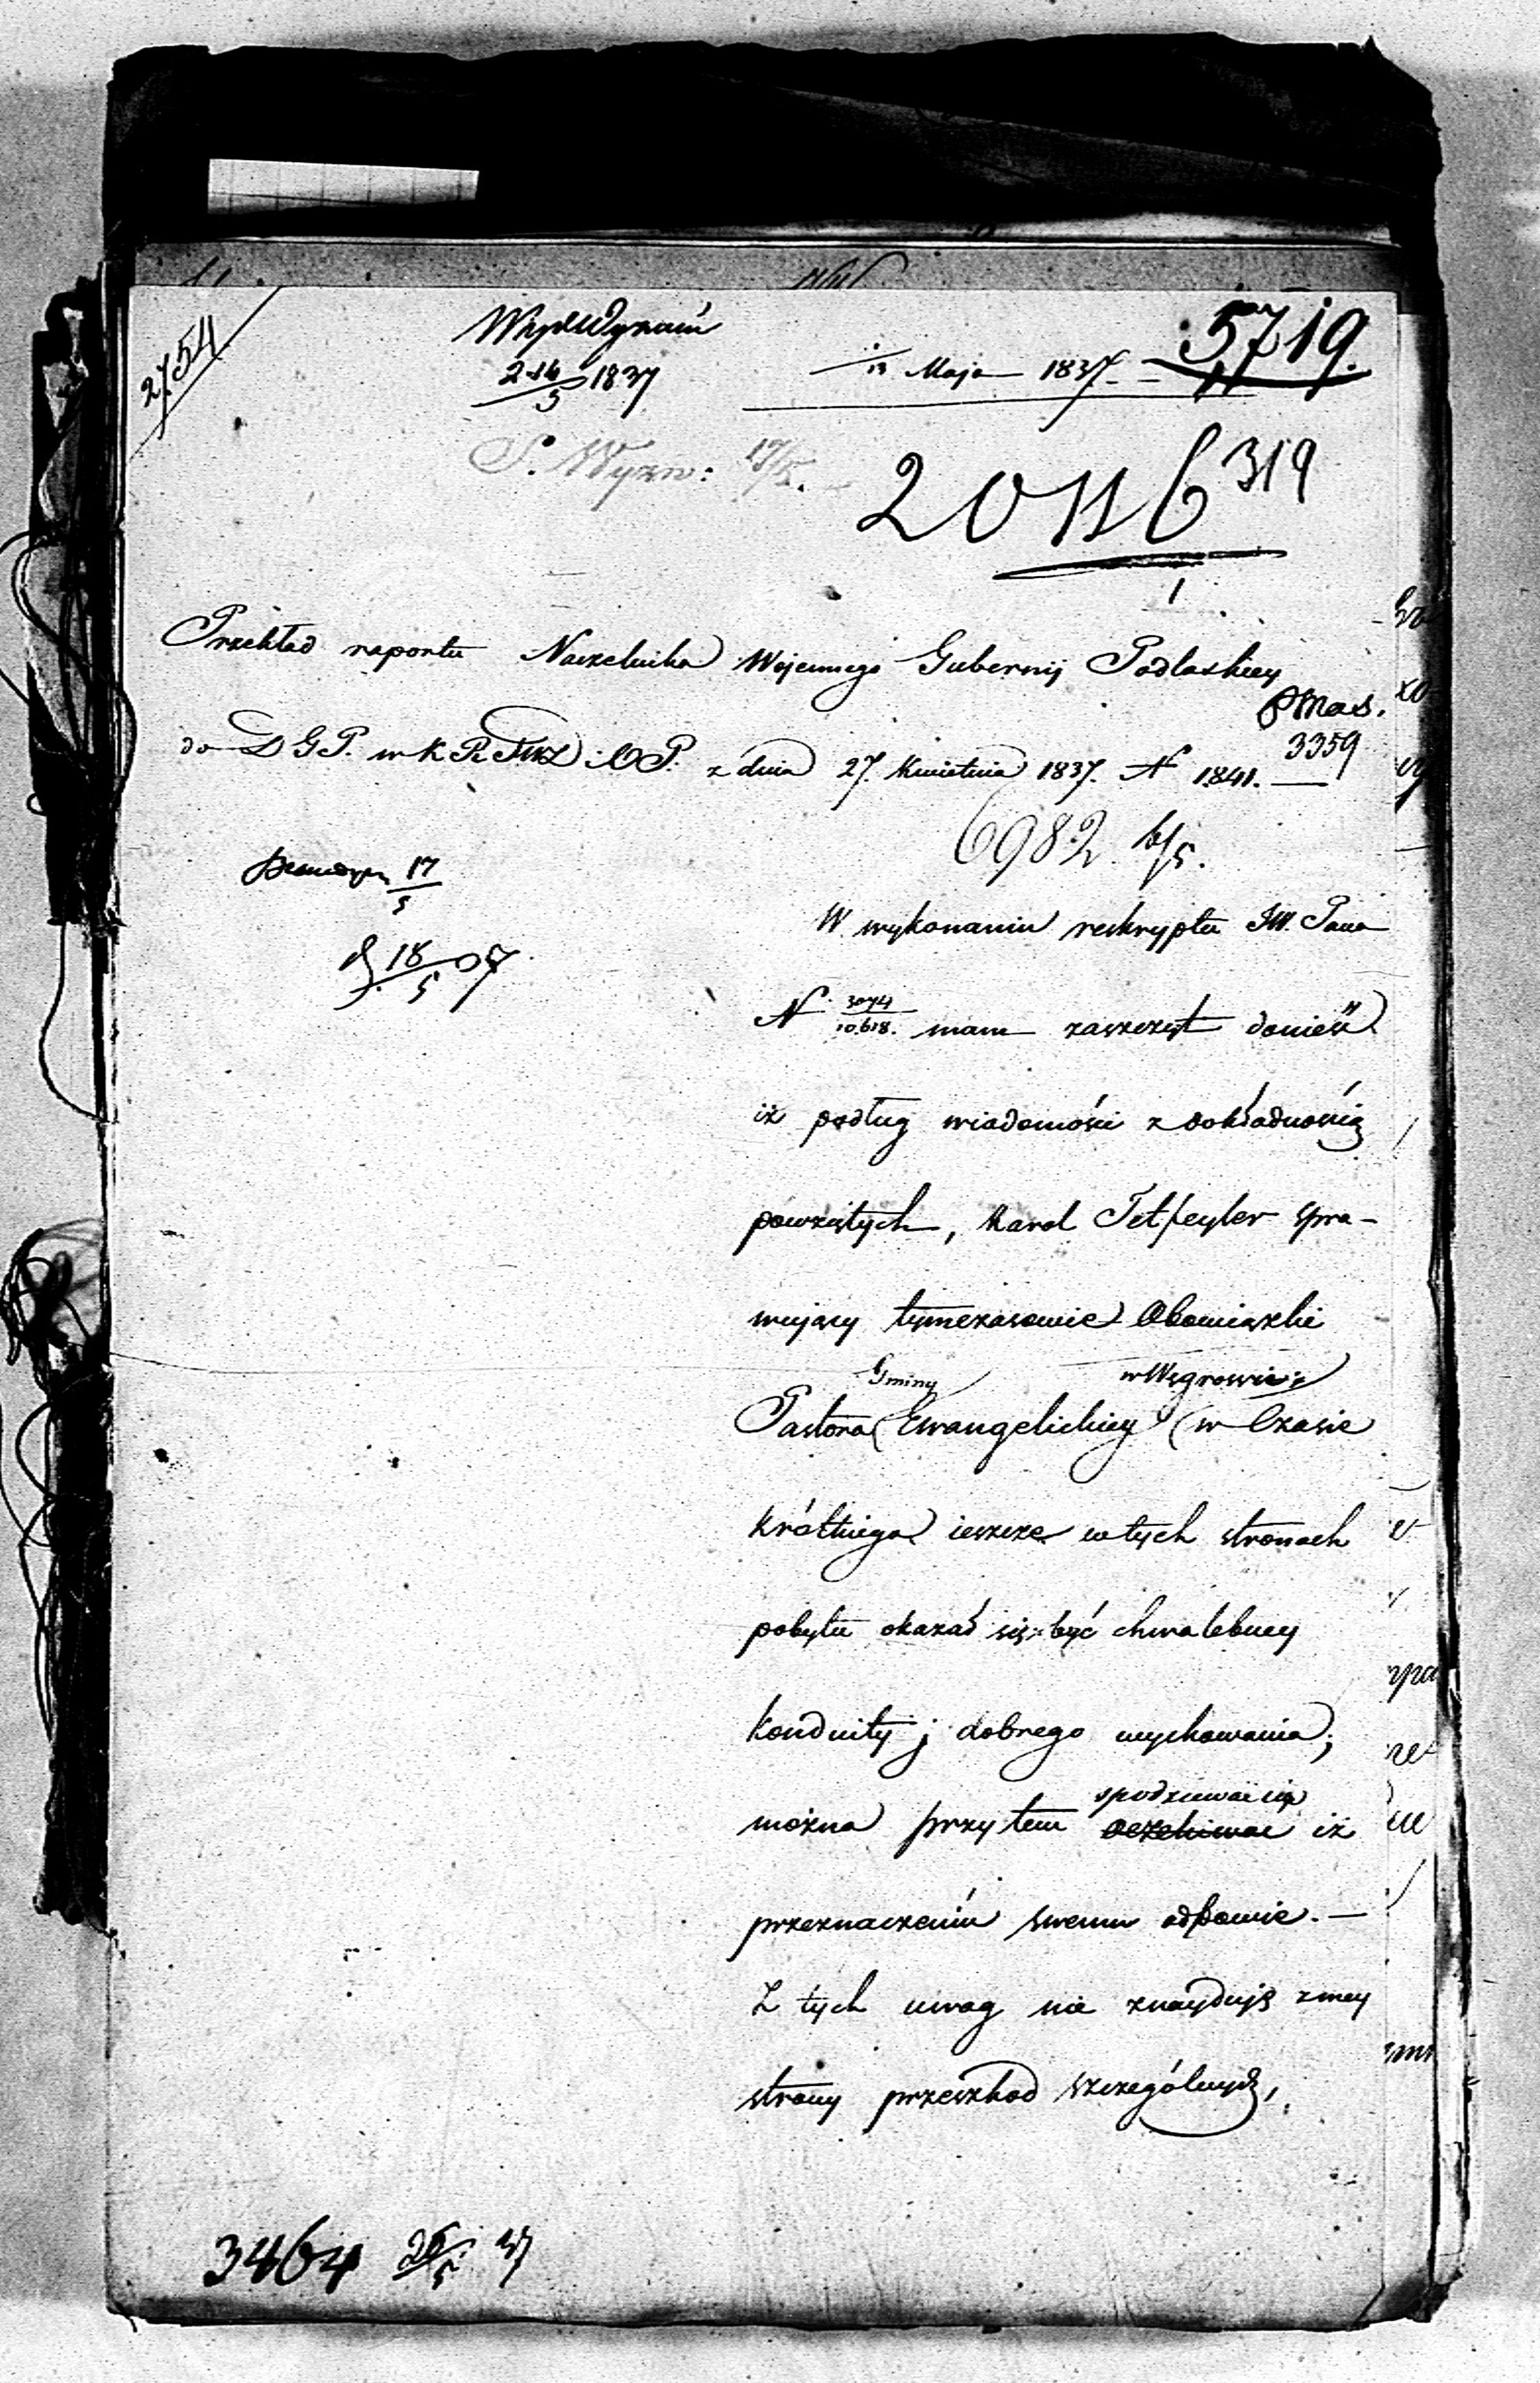 2754
Wyzn
2/14 1837
5
12 Maja 1837.
5719.
S. Wyzn: 17/5.
20116 319
Przekład raportu Naczelnika Wojennego Gubernij Podlaskiey
do D G P. w K R S W D i O P. z dnia 27. Kwietnia 1837. N 1841.
3359
6982 5.
17
5
18
5
W wykonaniu reskryptu JW. Pana
N 3074/10,618. mam zaszczyt donieść
iż podług wiadomości z dokładnością
powziętych, Karol Tetfeyler spra-
wujący tymczasowie Obowiązki
Gminy w Węgrowie
Pastora Ewangelickiey (w Czasie
krótkiego ieszcze w tych stronach
pobytu okazał się być chwalebney
konduity j dobrego wychowania;
spodziewać się
można przytem oczekiwać iż
przeznaczeniu swemu odpowie. —
Z tych uwag nie znayduję z mey
strony przeszkod szczególnych,
3464 26/5 37